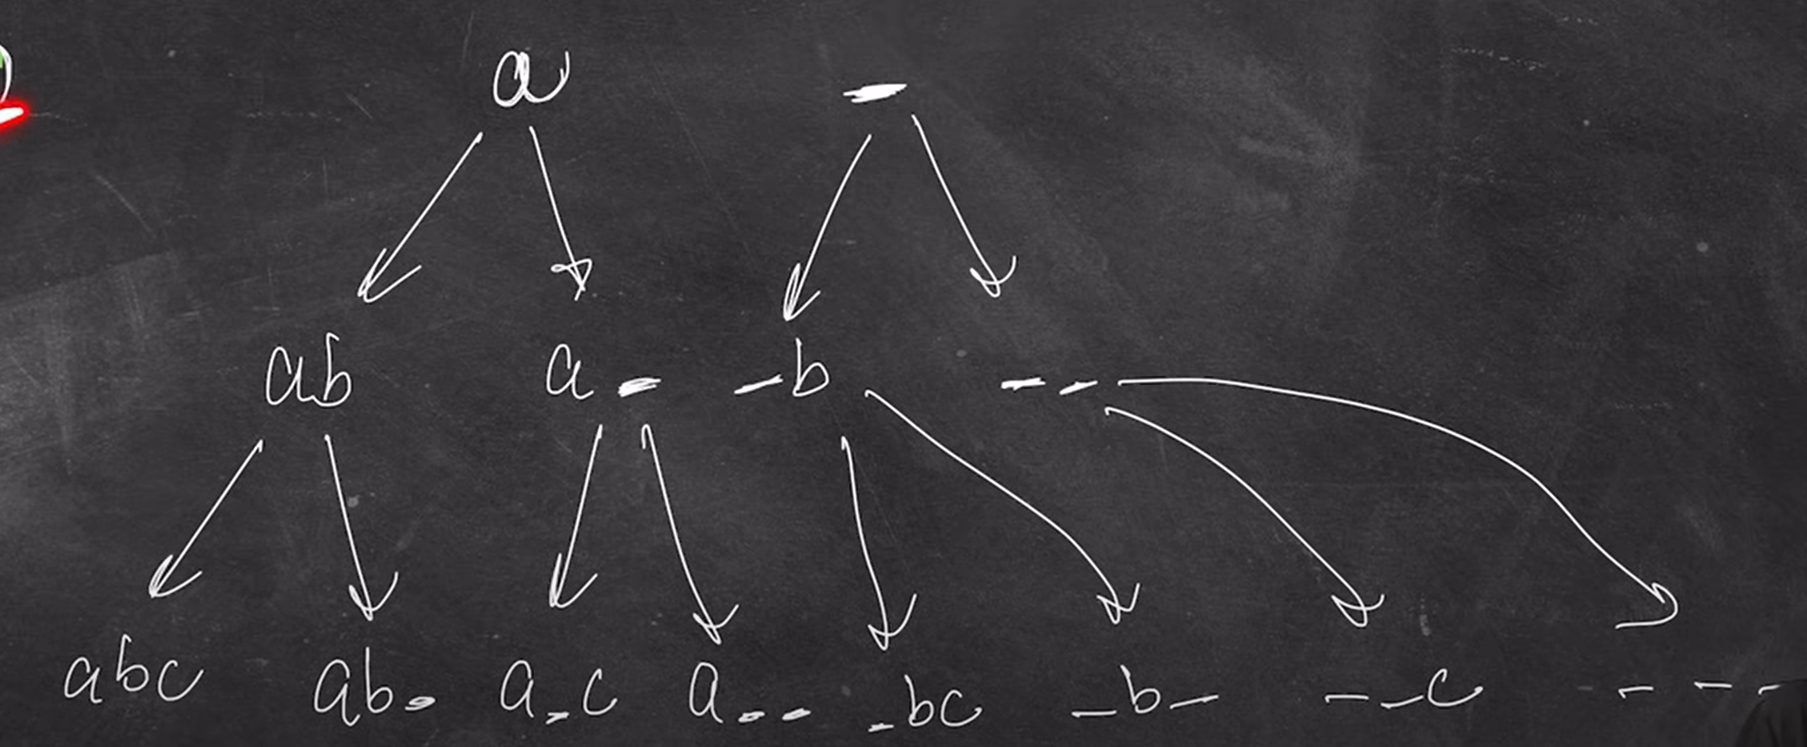 a -
ab a- -b --
abc ab- a-c a-- -bc -b- --c ---